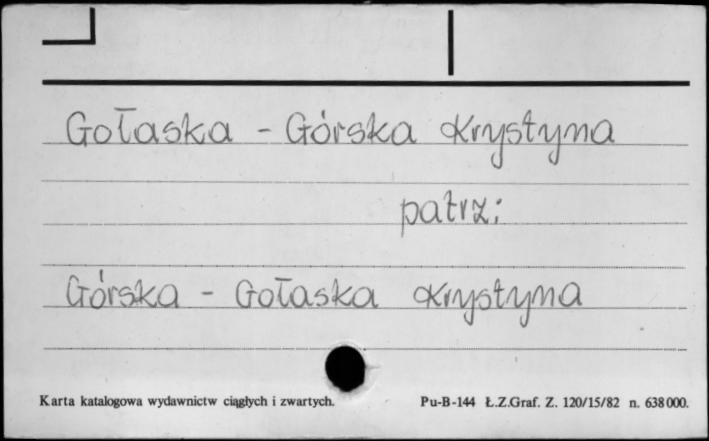 Gołaska - Górska Krystyna
patrz:
Górska - Gołaska Krystyna
Karta katalogowa wydawnictw ciągłych i zwartych. Pu-B-144 Ł.Z.Graf. Z. 120/15/82 n. 638000.